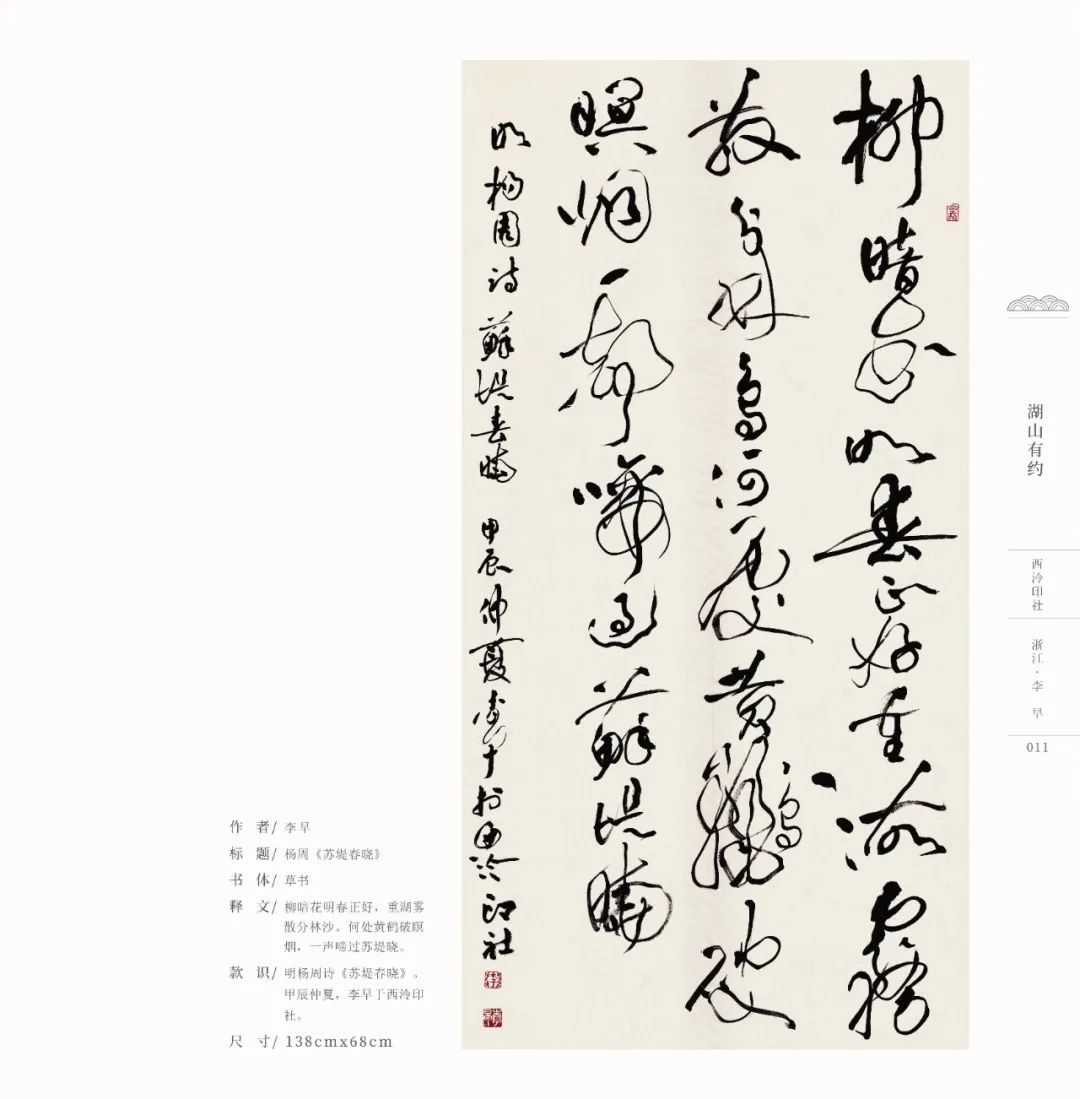 柳暗花明春正好重湖霧
散分林鳥何處黃鸝破
暝烟一聲啼過蘇堤曉
明楊周詩蘇堤春曉 甲辰仲夏李早於西泠印社
湖山有约
西泠印社
浙江·李 早
011
作 者/ 李早
标 题/ 杨周《苏堤春晓》
书 体/ 草书
释 文/ 柳暗花明春正好，重湖雾
散分林沙。何处黄鹤破暝
烟，一声啼过苏堤晓。
款 识/ 明杨周诗《苏堤春晓》。
甲辰仲夏，李早于西泠印
社。
尺 寸/ 138cmx68cm